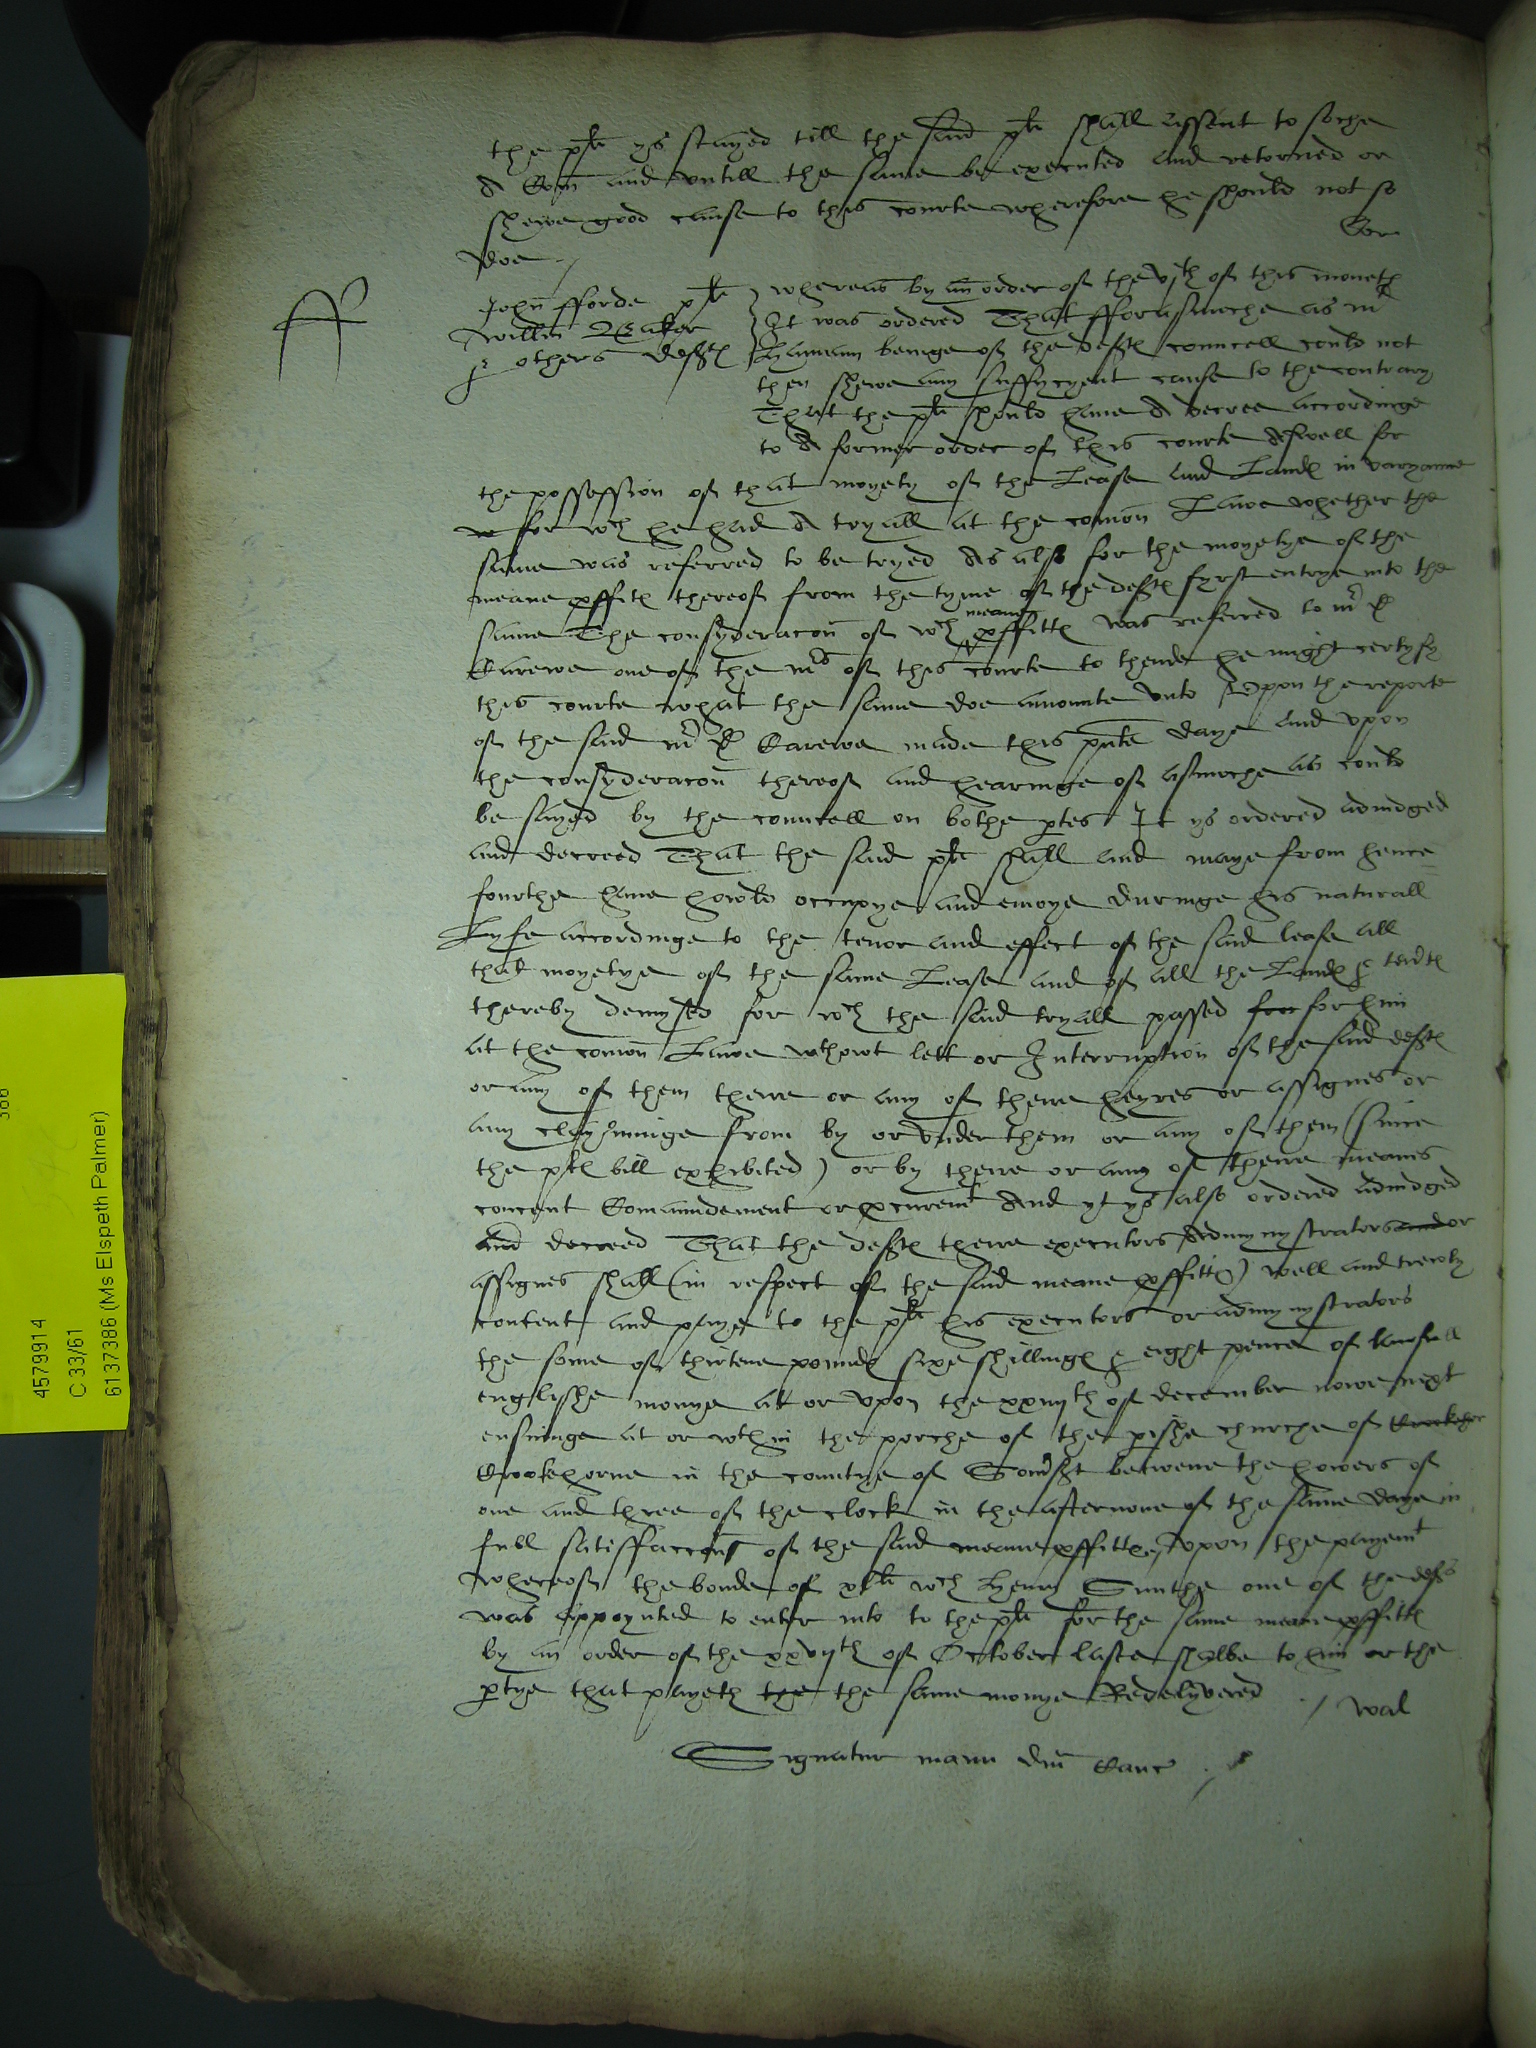 the plt ys stayed till the said plt shall assent to soche
A Com and untill the same be executed and retorned or
shewe good cause to this courte wherefore he should not so
doe
Cor
John fforde plt
Willm Baker
& others deftes
whereas by an order of the vjth of this moneth
It was ordered That fforasmuche as mr
Hamam beinge of the deftes councell could not
then shewe any suffycyent cause to the contrary
That the plt should have A decree accordinge
to A former order of this courte Aswell for
the possession of that moyety of the Lease and Landes in varyaunce
for wch he had A tryall at the comon Lawe whether the
same was referred to be tryed As also for the moyetye of the
meane pffites thereof from the tyme of the deftes fyrst entrye into the
same The consyderacon of wch meane pffittes was referred to mr D
Carewe one of the mrs of this courte to thende he might certyfy
this courte what the same doe amounte unto Uppon the reporte
of the said mr D Carewe made this pnte daye and upon
the consyderacon thereof and hearinge of asmuche as could
be sayed by the councell on bothe ptes It ys ordered adiudged
and decreed That the said plt shall and maye from hence
fourthe have howld occupye and enioye duringe his naturall
Lyfe accordinge to the tenor and effect of the said lease all
that moyetye of the same Lease and of all the Landes & tentes
thereby demysed for wch the said tryall passed for him
at the comon Lawe wthowt lett or Interruption of the said deftes
or any of them theire or any of theire heyres or assignes or
any claymminge from by or under them or any of them (since
the pltes bill exhibited) or by theire or any of theire meanes
concent Comaundement or pcuremt And yt ys also ordered adiudged
and decreed That the deftes theire executors Admynystrators and or
assignes shall (in respect of the said meane pffittes) well and trewly
content and paye to the plt his executors or admynystrators
the some of thirtene poundes sixe shillinges & eight pence of lawfull
englishe monye at or upon the xxiijth of december nowe next
ensuinge at or wthin the porche of the pishe churche of Crookehor
Crookehorne in the countye of Somst betwene the howers of
one and three of the clock in the afternone of the same daye in
full satisffaccons of the said meane pffittes, upon the paymt
whereof the bonde of xlli wch Henry Smithe one of the defts
was appoynted to enter into to the plt for the same meane pffittes
by an order of the xxvijth of October laste shalbe to him or the
ptye that payeth the the same monye Redelyvered
wal
Signatur manu dni Canc
4579914
C 33/61
6137386 (Ms Elspeth Palmer)